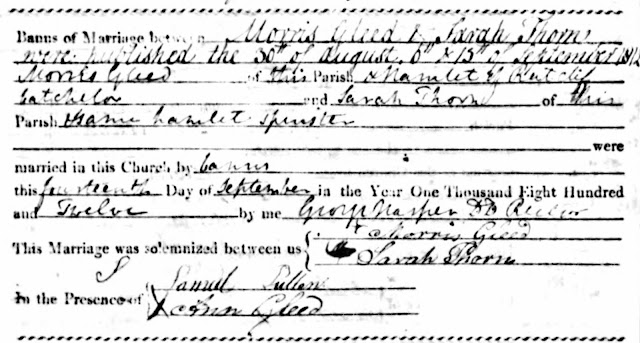 Banns of Marriage between Morris Gleed & Sarah Thorn
were published the 30th of August, 6th & 13th of September 1812
Morris Gleed of this Parish & Hamlet of Ratclif
Batchelor and Sarah Thorn of this
Parish & same hamlet Spinster
were
married in this Church by banns
this fourteenth Day of September in the Year One Thousand Eight Hundred
and Twelve by me George Harper DD Rector
This Marriage was solemnized between us Morris Gleed
Sarah Thorn
In the Presence of Samuel
Ann Gleed